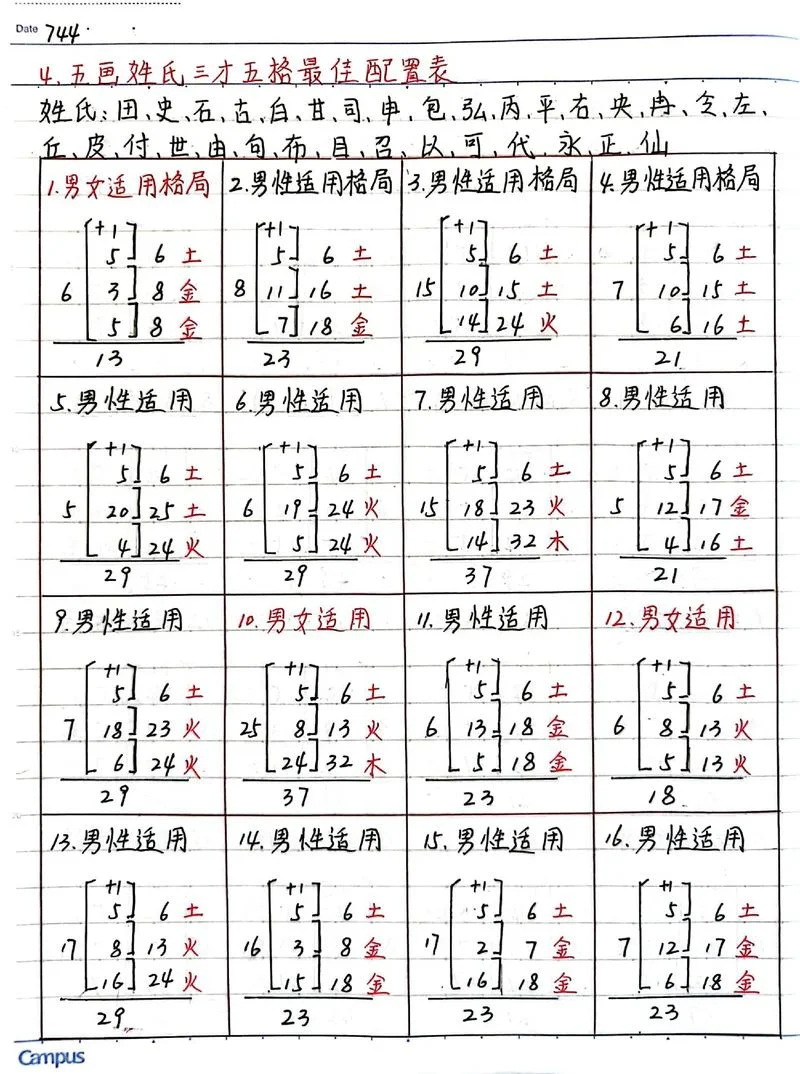 Date 744 · ·
4.五画姓氏三才五格最佳配置表
姓氏:田、史、石、古、白、甘、司、申、包、弘、丙、平、右、央、冉、令、左、
丘、皮、付、世、由、句、布、目、召、以、可、代、永、正、仙
1.男女适用格局
+1
5 6 土
6 3 8 金
5 8 金
13
2.男性适用格局
+1
5 6 土
8 11 16 土
7 18 金
23
3.男性适用格局
+1
5 6 土
15 10 15 土
14 24 火
29
4.男性适用格局
+1
5 6 土
7 10 15 土
6 16 土
21
5.男性适用
+1
5 6 土
5 20 25 土
4 24 火
29
6.男性适用
+1
5 6 土
6 19 24 火
5 24 火
29
7.男性适用
+1
5 6 土
15 18 23 火
14 32 木
37
8.男性适用
+1
5 6 土
5 12 17 金
4 16 土
21
9.男性适用
+1
5 6 土
7 18 23 火
6 24 火
29
10.男女适用
+1
5 6 土
25 8 13 火
24 32 木
37
11.男性适用
+1
5 6 土
6 13 18 金
5 18 金
23
12.男女适用
+1
5 6 土
6 8 13 火
5 13 火
18
13.男性适用
+1
5 6 土
17 8 13 火
16 24 火
29
14.男性适用
+1
5 6 土
16 3 8 金
15 18 金
23
15.男性适用
+1
5 6 土
17 2 7 金
16 18 金
23
16.男性适用
+1
5 6 土
7 12 17 金
6 18 金
23
Campus